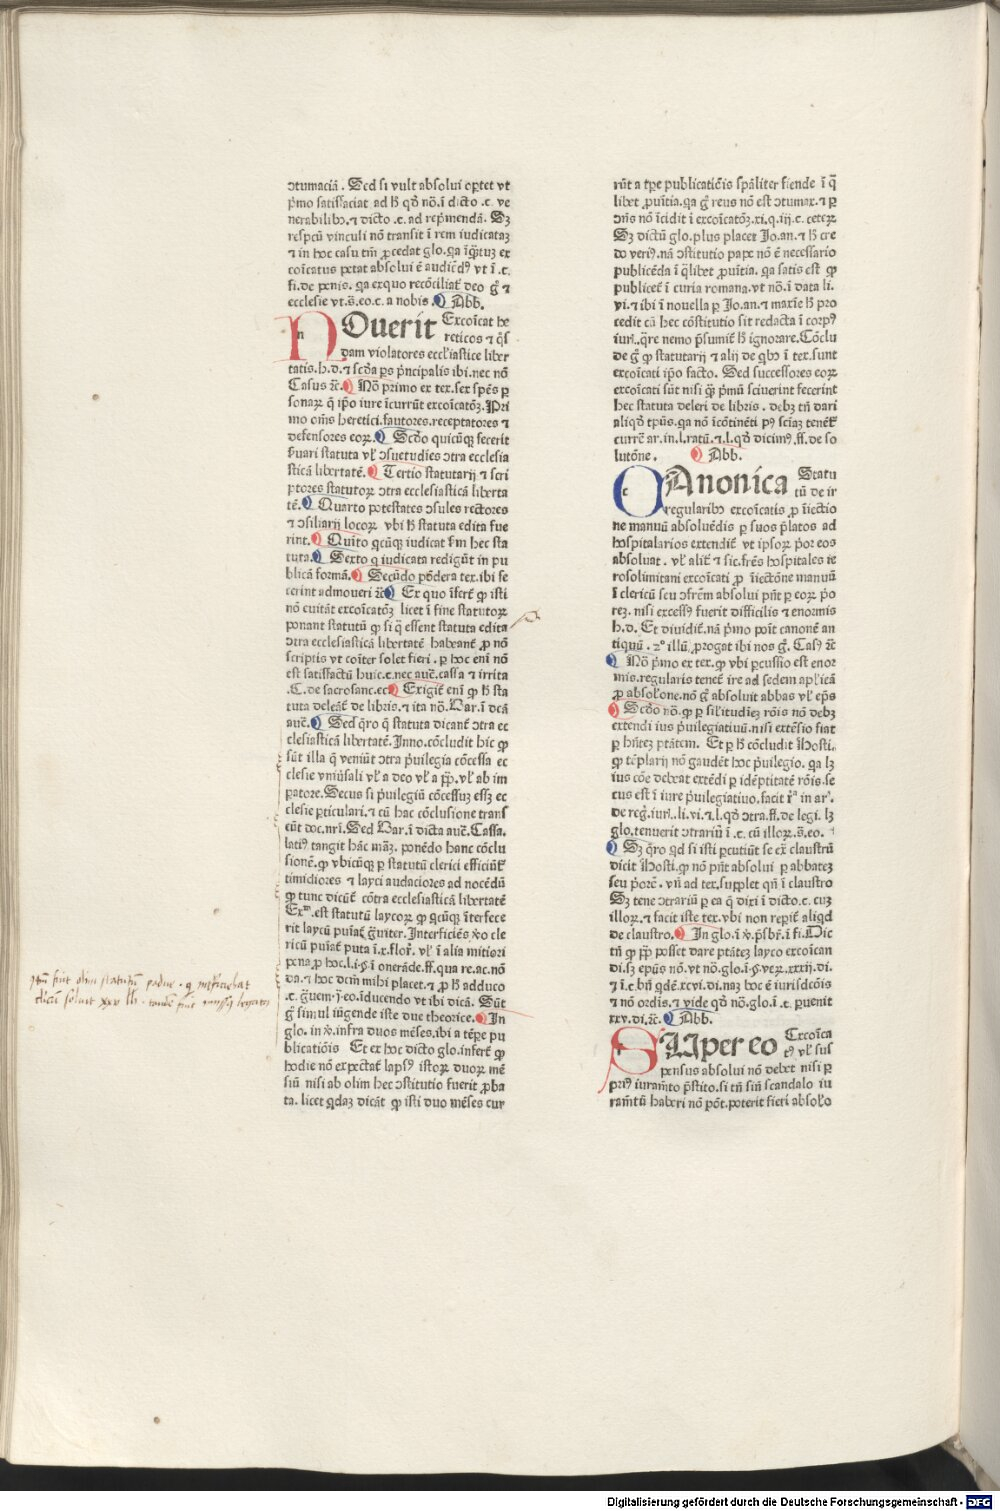 ↄtumaciã. Sed si vult absolui oꝑtet vt
pͥmo satisfaciat ad hͨ qđ no. ĩ dicto .c. ve
nerabilibꝰ. ⁊ dicto .c. ad repͥmendã. Sꝫ
respcũ vinculi nõ transit ĩ rem iudicataꝫ
⁊ in hoc casu tm̃ ꝓcedat glo. qa
coĩcatus petat absolui ẽ
fi. de penis. qa exquo recõciliat̃ deo g̃ ⁊
ecclesie vt .s. eo. c. a nobis. Abb.
NOuerit Excoĩcat he
reticos ⁊ q̃s
dam violatores eccl̃iastice liber
tatis. h. d. ⁊ scđa ps pͥncipalis ibi. nec nõ
Casus ⁊c̃. Nõ primo ex tex. sex spẽs ꝑ
sonaꝝ q̃ ip̃o iure ĩcurrũt excoĩcatõꝫ. Pri
mo oẽs heretici. fautores. receptatores ⁊
defensores eoꝝ. Scđo quicũqꝫ fecerit
ẜuari statuta vl̃ ↄsuetudĩes ↄtra ecclesia
sticã libertatẽ. Tertio statutarij ⁊ scri
ptores statutoꝝ ↄtra ecclesiasticã liberta
tẽ. Quarto potestates ↄsules rectores
⁊ ↄsiliarij locoꝝ vbi hͨ statuta edita fue
rint. Quĩto qcũqꝫ iudicat ẜm hec sta
tuta. Sexto q iudicata redigũt in pu
blicã formã. Secũdo põdera tex. ibi fe
cerint admoueri ⁊c̃ Ex quo ĩfert̃ ꝙ isti
nõ euitãt excoĩcatõꝫ licet ĩ fine statutoꝝ
ponant statutũ ꝙ si q̃ essent statuta edita
ↄtra ecclesiasticã libertatẽ habeant̃ ꝓ nõ
scriptis vt coĩter solet fieri. ꝑ hoc enĩ nõ
est satisfactũ huic .c. nec autẽ. cassa ⁊ irrita
.C. de sacrosanc. ec Exigit̃ enĩ ꝙ hͨ sta
tuta deleãt̃ de libris. ⁊ ita no. Bar. ĩ dcã
autẽ. Sed q̃ro q̃ statuta dicant̃ ↄtra ec
clesiasticã libertatẽ. Inno. cõcludit hic ꝙ
sũt illa q̃ veniũt ↄtra pͥuilegia cõcessa ec
clesie vniũsali vl̃ a deo vl̃ a pp̃. vl̃ ab im
ꝑatore. Secus si pͥuilegiũ cõcessuꝫ essꝫ ec
clesie ꝑticulari. ⁊ cũ hac cõclusione trans
eũt doc. nr̃i. Sed Bar. ĩ dicta autẽ. Cassa.
latiꝰ tangit hãc mãꝫ. ponẽdo hanc cõclu
sionẽ. ꝙ vbicũqꝫ ꝑ statutũ clerici efficiũt̃
timidiores ⁊ layci audaciores ad nocẽdũ
ꝙ tunc dicũt̃ cõtra ecclesiasticã libertatẽ
Exᵐ. est statutũ laycoꝝ ꝙ qcũqꝫ ĩterfece
rit laycũ puĩat̃ g̃uiter. Interficiẽs v̾o cle
ricũ puĩat̃ puta ĩ .x. floꝝ. vl̃ ĩ alia mitiori
pena ꝓ hoc .l. i. § ĩ onerãde. ff. qua re. ac. nõ
da. ⁊ hoc dcm̃ mihi placet. ⁊ ꝓ hͨ adduco
.c. g̃uem. j̃. eo. ĩducendo vt ibi dicã. Sũt
g̃ simul iũgende iste due theorice. In
glo. in v̾. infra duos mẽses. ibi a tẽꝑe pu
blicatiõis Et ex hoc dicto glo. infert̃ ꝙ
hodie nõ expectat̃ lapsꝰ istoꝝ duoꝝ mẽ
siũ nisi ab olim hec ↄstitutio fuerit ꝓba
ta. licet qdaꝫ dicãt ꝙ isti duo mẽses cur
rũt a tꝑe publicatiõis sp̃aliter fiende ĩ q̃
libet ꝓuĩtia. qa g̃ reus nõ est ↄtumax. ⁊ ꝑ
ↄñs nõ ĩcidit ĩ excoĩcatõꝫ. xi. q. iij. c. ceteꝝ
Sꝫ dictũ glo. plus placet Jo. an. ⁊ hͨ cre
do veriꝰ. nã ↄstitutio pape nõ ẽ necessario
publicẽda ĩ q̃libet ꝓuĩtia. qa satis est ꝙ
publicet̃ ĩ curia romana. vt no. ĩ data li.
vi. ⁊ ibi ĩ nouella ꝑ Jo. an. ⁊ maxĩe hͨ pro
cedit cũ hec cõstitutio sit redacta ĩ corpꝰ
iur̃. q̃re nemo pͥsumit̃ hͨ ignorare. Cõclu
de g̃ ꝙ statutarij ⁊ alij de qbꝰ ĩ tex. sunt
excoĩcati ip̃o facto. Sed successores eoꝝ
excoĩcati sũt nisi q̃ pͥmũ sciuerint fecerint
hec statuta deleri de libris. debꝫ tñ dari
aliqđ tp̃us. qa nõ ĩcõtinẽti pꝰ sciaꝫ tenet̃
currẽ ar. in .l. ratũ. ⁊ .l. qđ dicimꝰ. ff. de so
lutõne. Abb.
CAnonica Statu
tũ de ir
regularibꝰ excoĩcatis ꝓ ĩiectio
ne manuũ absoluẽdis ꝑ suos pͥlatos ad
hospitalarios extendit̃ vt ipsoꝝ pͥor eos
absoluat. vl̃ alit̃ ⁊ sic. fr̃es hospitales ie
rosolimitani excoĩcati ꝓ ĩiectõne manuũ
ĩ clericũ seu ↄfrẽm absolui pñt ꝑ eoꝝ pͥo
reꝫ. nisi excessꝰ fuerit difficilis ⁊ enormis
h. d. Et diuidit̃. nã pͥmo poĩt canonẽ an
tiquũ. 2ᵒ illũ ꝓrogat ibi nos g̃. Casꝰ ⁊c̃
Nõ pͥmo ex tex. ꝙ vbi ꝑcussio est enor
mis. regularis tenet̃ ire ad sedem aplĩcã
ꝓ absolõne. nõ g̃ absoluit abbas vl̃ ep̃s
Scđo no. ꝙ ꝑ silitudiẽꝫ rõis nõ debꝫ
extendi ius pͥuilegiatiuũ. nisi extẽsio fiat
ꝑ hñteꝫ ptãtem. Et ꝑ hͨ cõcludit Hosti.
ꝙ tẽplarij nõ gaudẽt hoc pͥuilegio. qa lꝫ
ius cõe debeat extẽdi ꝑ idẽptitatẽ rõis. se
cus est ĩ iure pͥuilegiatiuo. facit r̃ᵃ in ar̃.
de reg̃. iur̃. li. vi. ⁊ .l. qđ ↄtra. ff. de legi. lꝫ
glo. tenuerit ↄtrariũ ĩ .c. cũ illoꝝ. s̃. eo.
Sꝫ q̃ro qd si isti ꝑcutiũt se ex̃ claustrũ
dicit Hosti. ꝙ nõ pñt absolui ꝑ abbateꝫ
seu pͥorẽ. vñ ad tex. supplet qñ ĩ claustro
Sꝫ tene ↄtrariũ ꝑ ea q̃ dixi ĩ dicto .c. cuꝫ
illoꝝ. ⁊ facit iste tex. vbi non reꝑit̃ aliqd
de claustro. In glo. ĩ v̾. pͥsbr̃. ĩ fi. Dic
tñ ꝙ pp̃ posset dare ptãteꝫ layco excoĩcan
di. sꝫ ep̃us nõ. vt no. glo. ĩ .§. veꝝ. xxxij. di.
⁊ ĩ .c. bñ qdẽ. xcvi. di. naꝫ hoc ẽ iurisdcõis
⁊ nõ ordĩs. ⁊ vide qđ no. glo. ĩ .c. ꝑuenit
xxv. di. ⁊c̃. Abb.
SUper eo Excoĩca
tꝰ vl̃ sus
pensus absolui nõ debet nisi ꝑ
priꝰ iuram̃to pͥstito. si tñ sin̄ scandalo iu
ram̃tũ haberi nõ põt. poterit fieri absol̃o
Digitalisierung gefördert durch die Deutsche Forschungsgemeinschaft - DFG